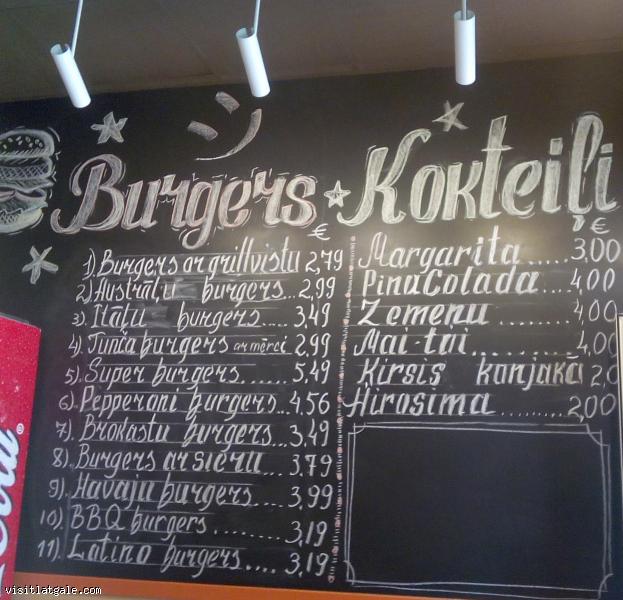 Burgers
€
1). Burgers ar grillvistu 2,79
2) Austrāļu burgers... 2,99
3). Itāļu burgers..... 3,49
4). Tunča burgers ar mērci 2,99
5). Super burgers...... 5,49
6). Pepperoni burgers... 4,56
7). Brokastu burgers... 3,49
8). Burgers ar sieru... 3,79
9). Havaju burgers.... 3,99
10). BBQ burgers........ 3,19
11). Latino burgers.... 3,19
Kokteiļi
€
Margarita..... 3,00
PinaColada.... 4,00
Zemeņu ........ 4,00
Mai-tai ........ 4,00
Ķirsis konjakā 2,0
Hirosima ........ 2,00
Cola®
visitlatgale.com